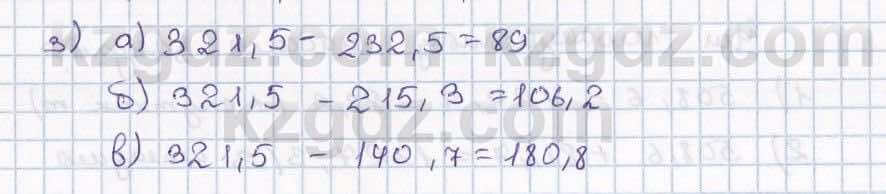 3) а) 321,5 - 232,5 = 89
б) 321,5 - 215,3 = 106,2
в) 321,5 - 140,7 = 180,8
kzgdz.com
kzgdz.com